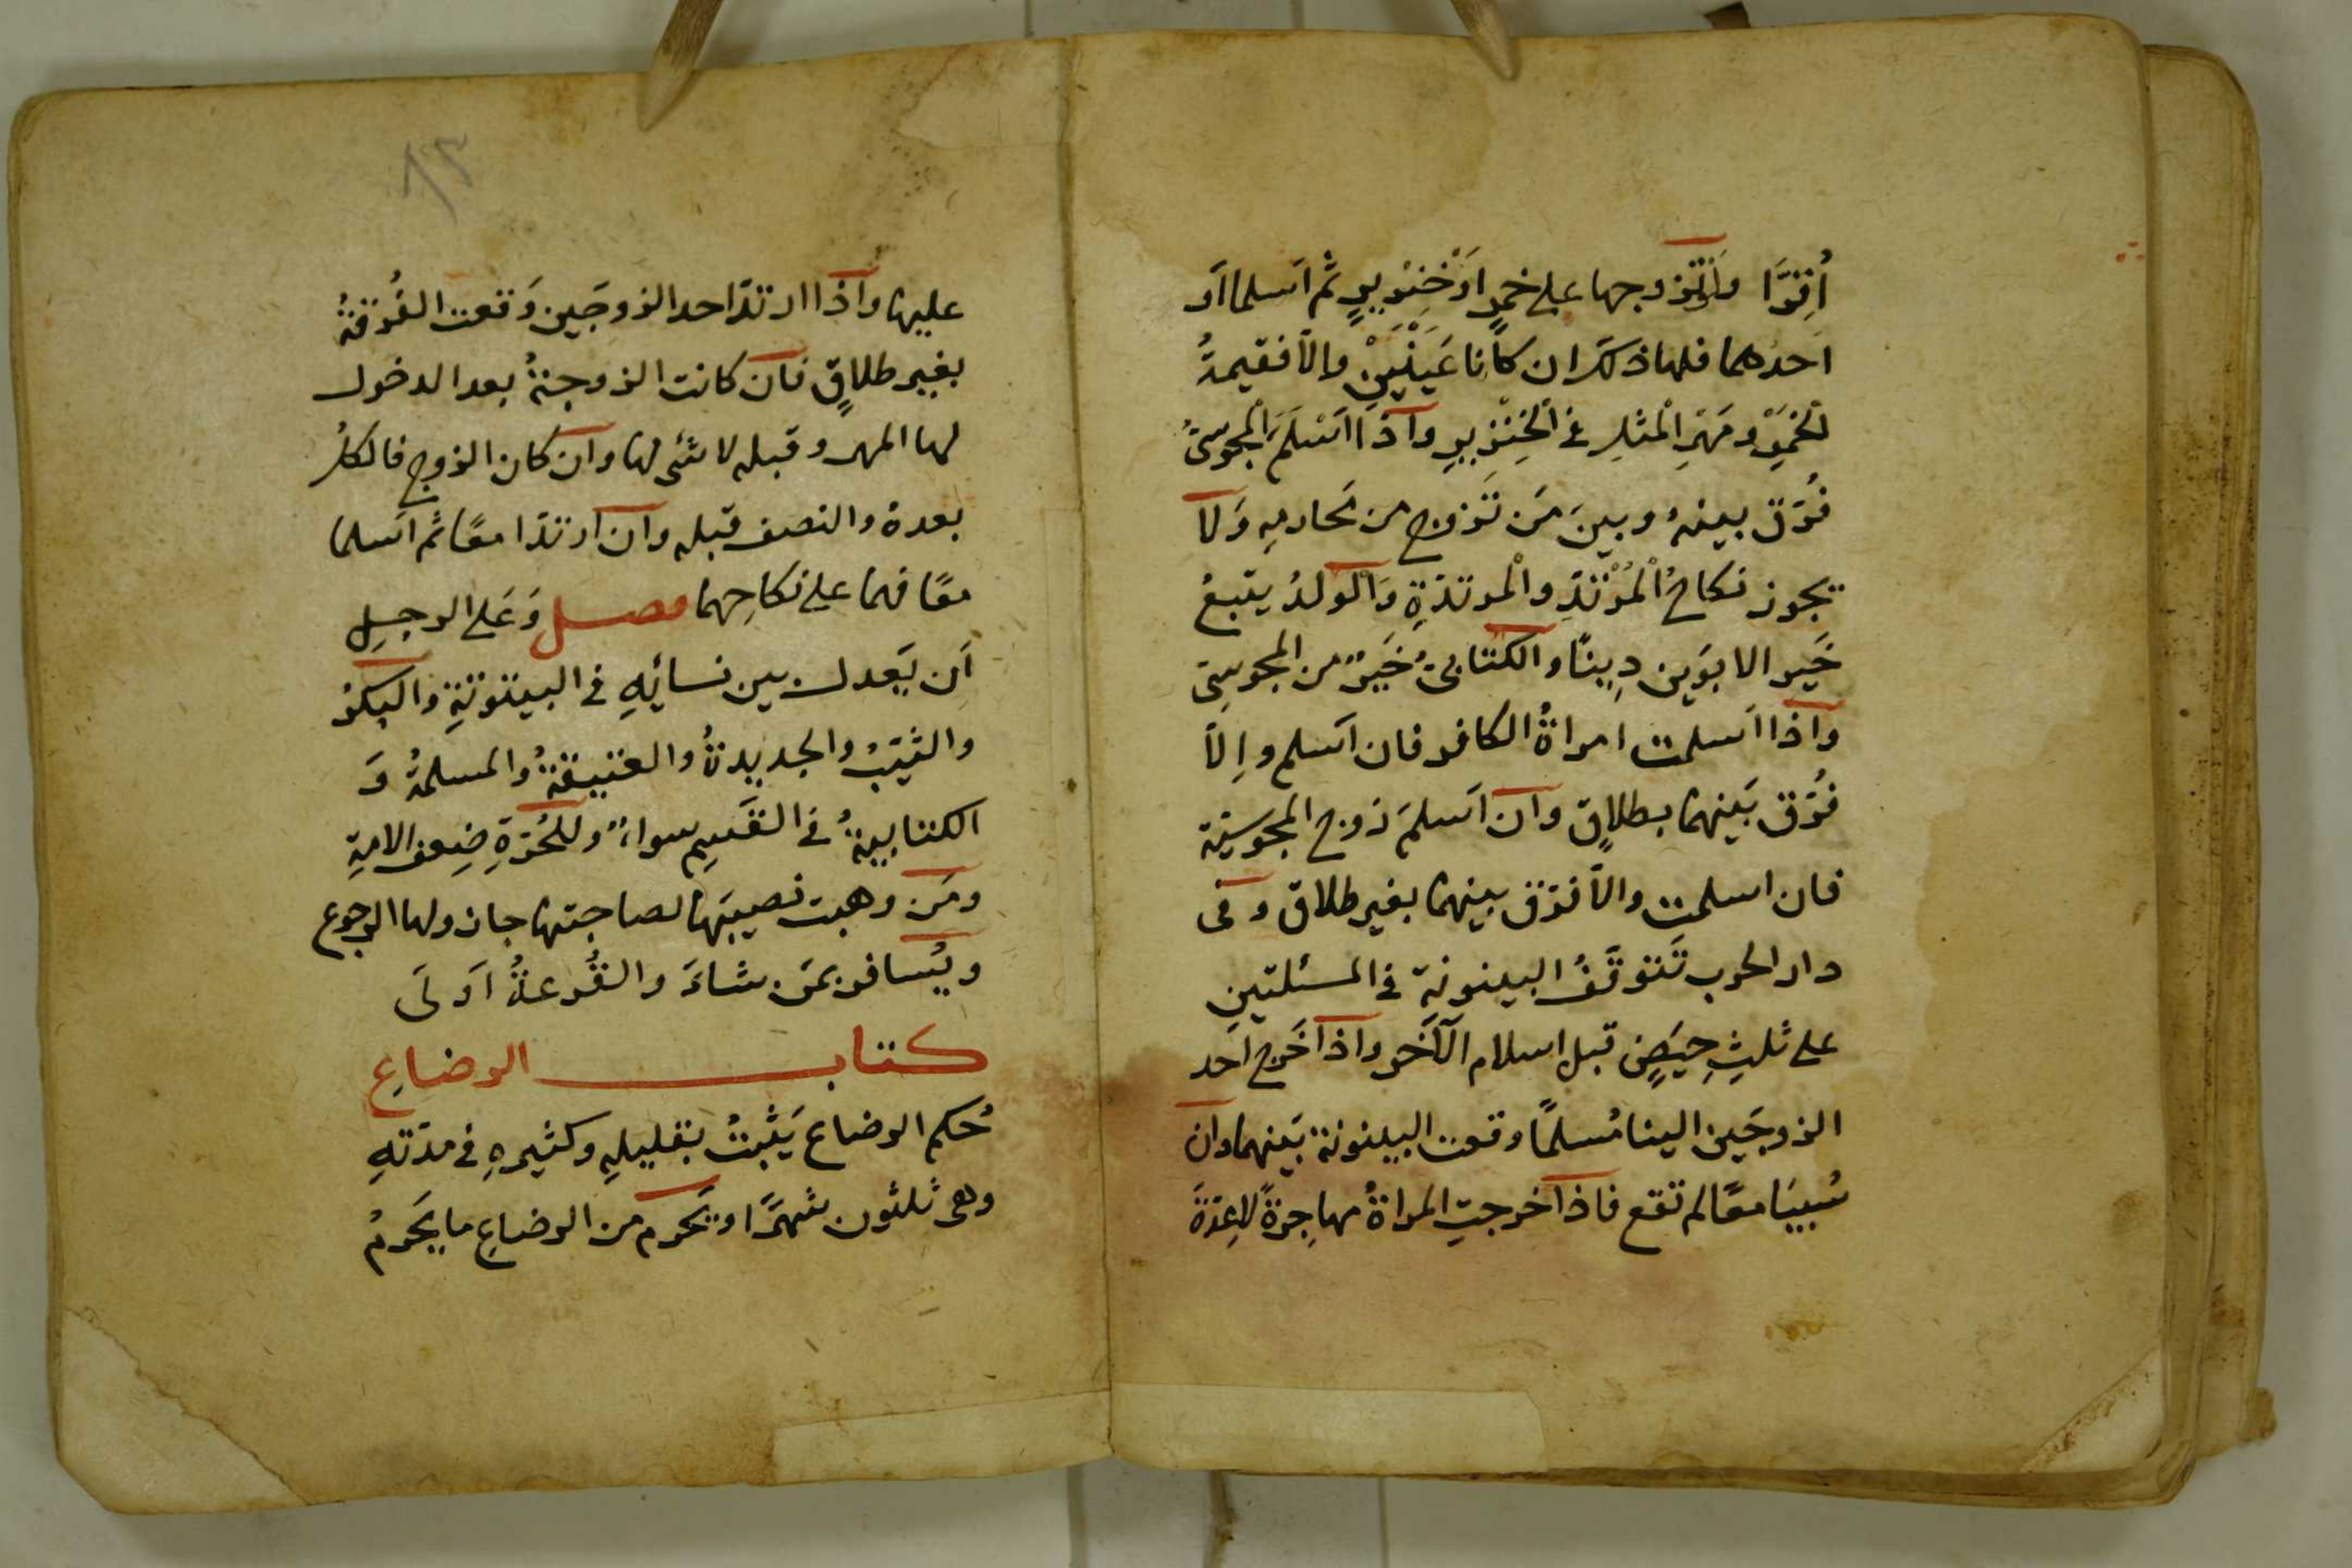 أُقِرَّا وان تزوجها على خمرٍ اَوْ خِنْزيرٍ ثم اَسلما اَو
اَحدهما فلها ذلك ان كانا عَيْنَيْنِ والّا فقيمةُ
الخمرِ ومَهْرِ الْمثلِ في الْخِنْزيرِ واذا اَسْلَمَ الْمجوسىُّ
فُرّق بينهُ وبينَ مَن تَزوج من مَحارمِهِ وَلا
يجوز نكاحُ الْمُرْتدِّ والْمرتدّةِ وَالْولدُ يتبعُ
خَير الابوَين دِينًا والكتابىُّ خَيرٌ من المجوسِىّ
واذا اَسلمت امراةُ الكافر فان اَسلم واِلّا
فُرّق بَينهما بطلاقٍ وان اَسلمَ زوج المجوسيّة
فان اسلمت والّا فُرّق بينهما بغير طلاق وفى
دار الحرب تَتوقَّفُ البينونة في المسئلتينِ
على ثلثِ حِيَضٍ قبل اسلام الآخَر واذا خَرج اَحد
الزوجَين الينا مُسلمًا وقعت البينونة بَينهما وان
سُبيَا معًا لم تقع فاذا خرجتِ المراةُ مهاجرةً لا عِدّةَ
٨٣
عليها واذا ارتدّ احد الزوجَين وَقعت الفُرقةُ
بغير طلاقٍ فان كانت الزوجةُ بعد الدخول
لها المهر وقبله لا شئ لها وان كان الزوج فالكلُّ
بعدهُ والنصف قبله وان ارتدّا معًا ثم اَسلما
معًا فهما على نكاحِهما فصل وَعَلى الرجلِ
اَن يَعدل بين نسائِهِ في البيتوتةِ والبكرُ
والثيّبُ والجديدةُ والعتيقةُ والمسلمةُ وَ
الكتابيةُ في القَسم سواءٌ وللحُرّةِ ضِعف الامةِ
ومَن وهبت نصيبَها لصاحبتها جاز ولها الرجوع
ويُسافر بمَن شاءَ والقُرعةُ اَولَى
كتاب الرضاع
حُكم الرضاع يَثبتُ بقليلهِ وكثيرهِ في مدّتهِ
وهى ثلثون شهرًا ويَحرم من الرضاع ما يَحرمُ